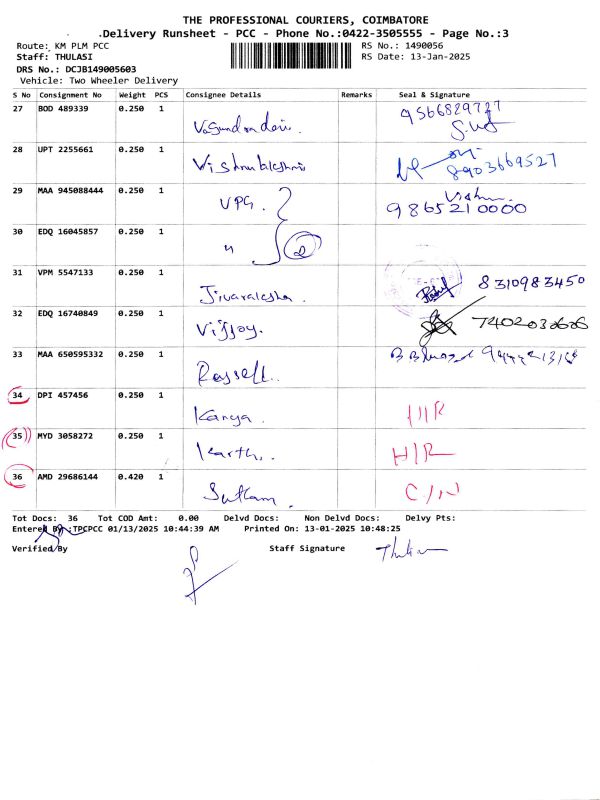 THE PROFESSIONAL COURIERS, COIMBATORE
.Delivery Runsheet - PCC - Phone No.:0422-3505555 - Page No.:3
Route: KM PLM PCC
RS No.: 1490056
Staff: THULASI
RS Date: 13-Jan-2025
DRS No.: DCJB149005603
Vehicle: Two Wheeler Delivery
S No Consignment No Weight PCS Consignee Details Remarks Seal & Signature
27 BOD 489339 0.250 1
28 UPT 2255661 0.250 1 8903669527
29 MAA 945088444 0.250 1 VPG. 9865210000
30 EDQ 16045857 0.250 1 " 2
31 VPM 5547133 0.250 1 8310983450
32 EDQ 16740849 0.250 1 Vijjoy.
33 MAA 650595332 0.250 1 Rossell.
34 DPI 457456 0.250 1 Kanya. HR
35 MYD 3058272 0.250 1 Karth. HR
36 AMD 29686144 0.420 1 C/N
Tot Docs: 36 Tot COD Amt: 0.00 Delvd Docs: Non Delvd Docs: Delvy Pts:
Entered By :TPCPCC 01/13/2025 10:44:39 AM Printed On: 13-01-2025 10:48:25
Verified By Staff Signature